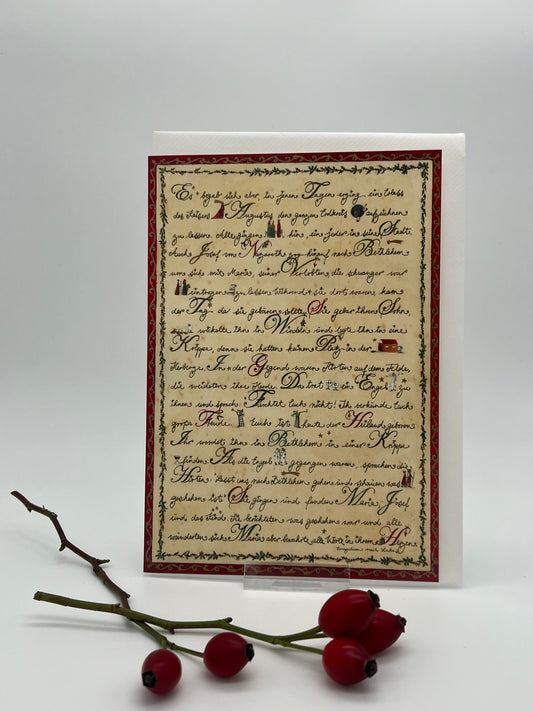 Es begab sich aber in jenen Tagen erging ein Erlass
des Kaisers Augustus, den ganzen Erdkreis aufzeichnen
zu lassen. Alle gingen hin, ein jeder in seine Stadt.
Auch Josef von Nazareth zog hinauf nach Bethlehem
um sich mit Maria, seiner Verlobten, die schwanger war
eintragen zu lassen. Während sie dort waren, kam
der Tag, da sie gebären sollte. Sie gebar ihren Sohn,
wickelte ihn in Windeln und legte ihn in eine
Krippe, denn sie hatten keinen Platz in der
Herberge. In der Gegend waren Hirten auf dem Felde,
die weideten ihre Herde. Da trat ein Engel zu
ihnen und sprach: Fürchtet Euch nicht! Ich verkünde Euch
große Freude. Euch ist heute der Heiland geboren
Ihr werdet ihn in Bethlehem in einer Krippe
finden. Als die Engel gegangen waren, sprachen die
Hirten: Lasst uns nach Bethlehem gehen und schauen was
geschehen ist. Sie gingen und fanden Maria, Josef
und das Kind. Sie berichteten was geschehen war und alle
wunderten sich. Maria aber bewahrte alle Worte in ihrem Herzen
Evangelium nach Lukas